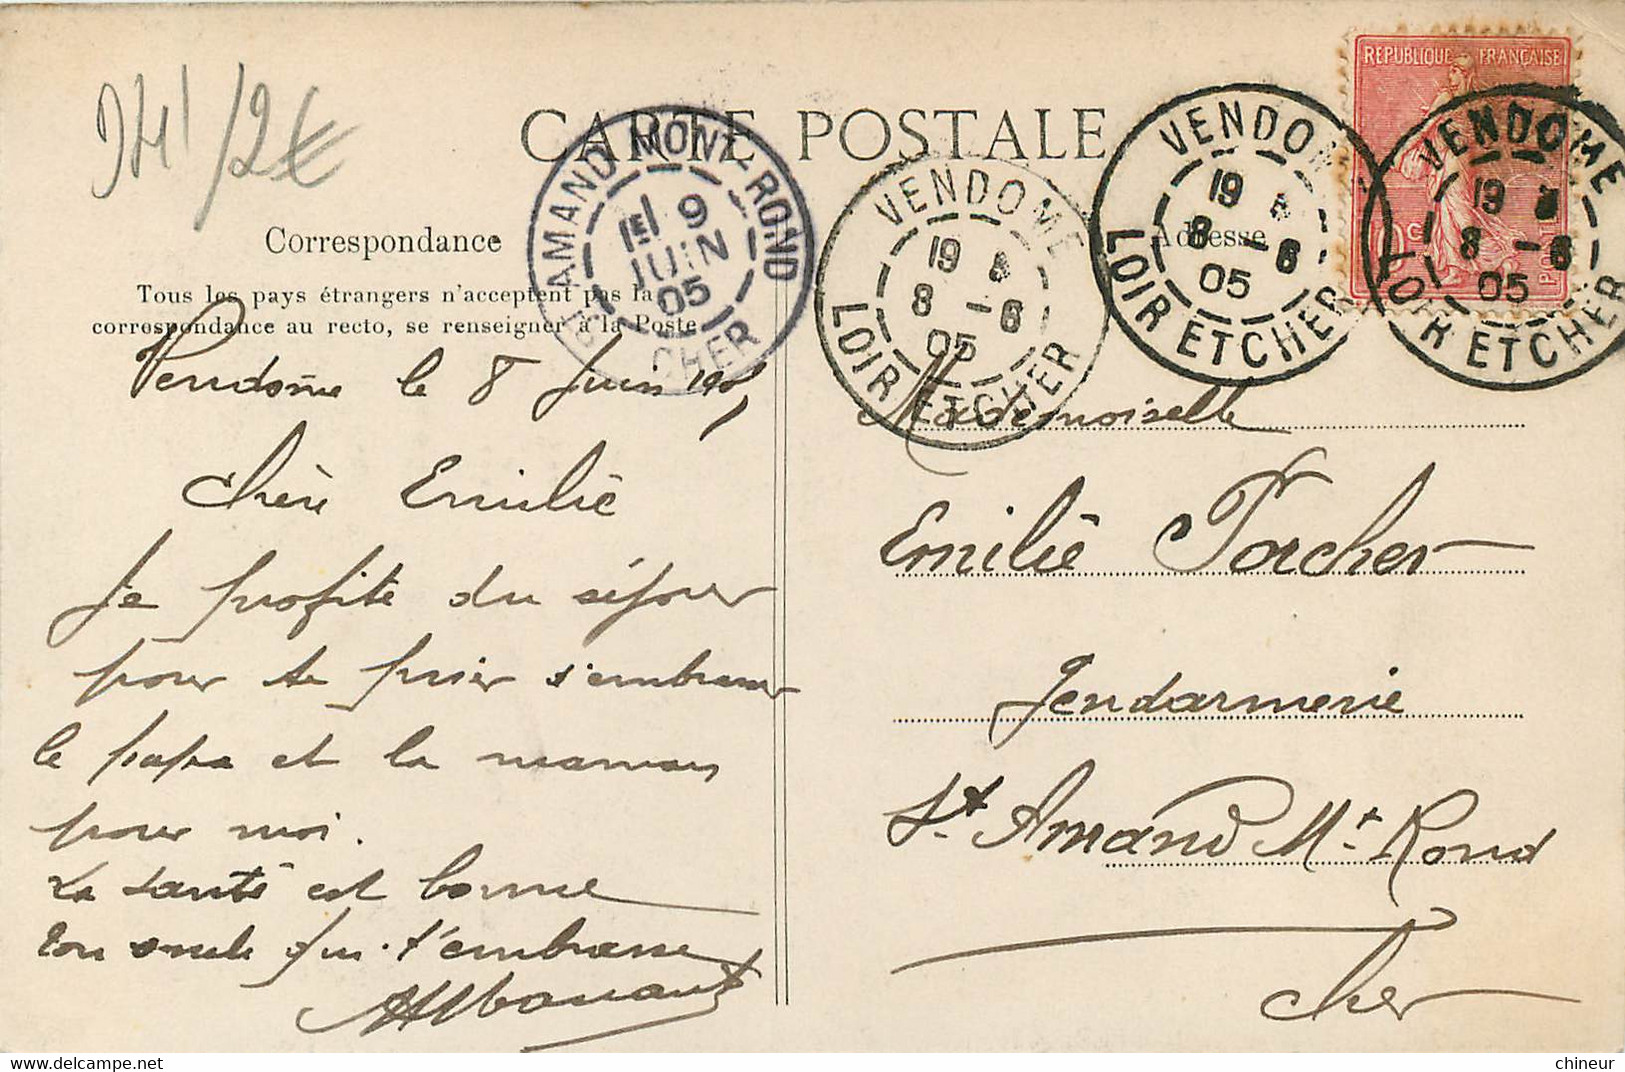 241/2€
CARTE POSTALE
REPUBLIQUE FRANÇAISE
POSTES
ST AMAND-MONT-ROND
1E 9
JUIN
05
CHER
VENDOME
19
8 - 6
05
LOIR ET CHER
VENDOME
19
8 - 6
05
LOIR ET CHER
VENDOME
19
8 - 6
05
LOIR ET CHER
Correspondance
Tous les pays étrangers n'acceptent pas la
correspondance au recto, se renseigner à la Poste
Vendôme le 8 Juin 1905
Chère Emilie
Je profite du séjour
pour te prier d'embrasser
le papa et la maman
pour moi.
La santé est bonne
Ton oncle qui t'embrasse
Adresse
Mademoiselle
Emilie Porcher
Gendarmerie
St Amand Mt Rond
Cher
delcampe.net
chineur